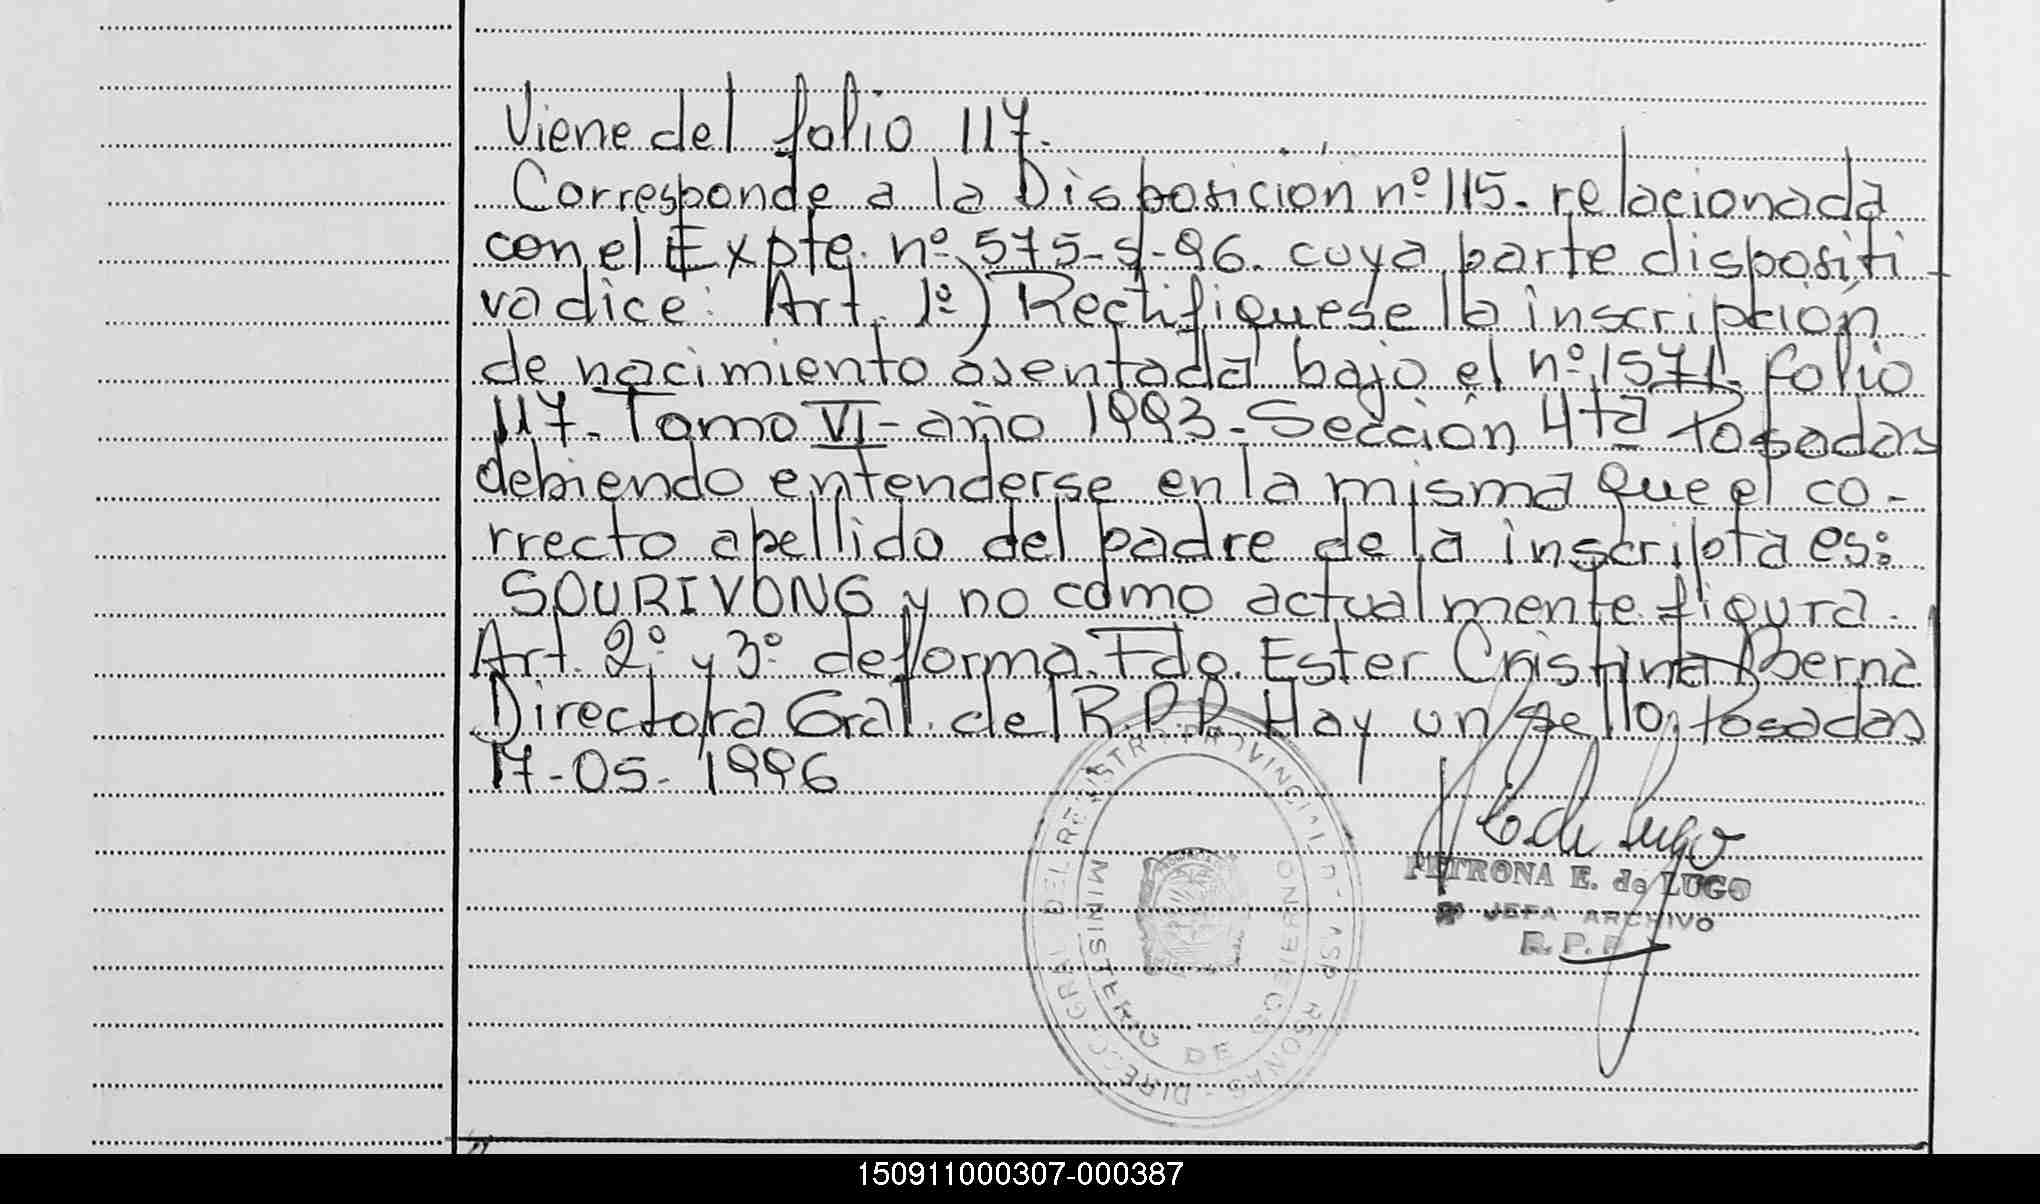 Viene del folio 117.
Corresponde a la Disposicion nº 115. relacionada
con el Expte. nº 575-S-96. cuya parte dispositi-
va dice: Art. 1º) Rectifiquese la inscripción
de nacimiento asentada bajo el nº 1571. folio
117. Tomo VI - año 1993. Sección 4ta Posadas
debiendo entenderse en la misma que el co-
rrecto apellido del padre de la inscripta es:
SOURIVONG y no como actualmente figura.
Art. 2º y 3º de forma. Fdo. Ester Cristina Berna
Directora Gral. del R.P.P. Hay un sello, Posadas
17-05-1996
DIREC. GRAL DEL REGISTRO PROVINCIAL DE LAS PERSONAS
MINISTERIO DE GOBIERNO
PETRONA E. de LUGO
JEFA ARCHIVO
R.P.P.
150911000307-000387